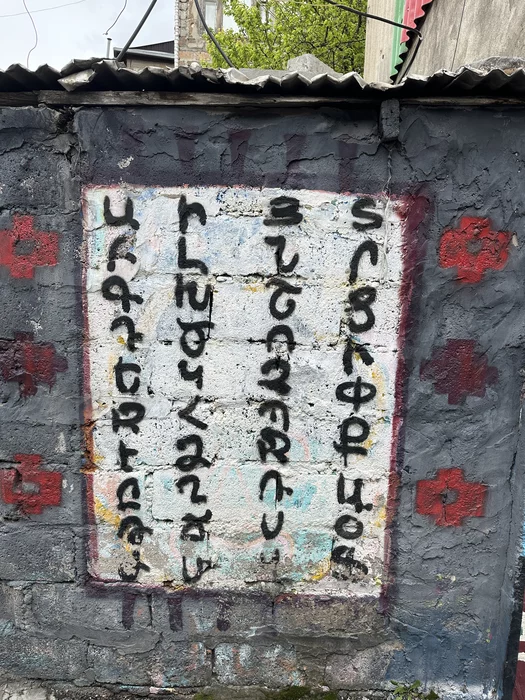 Ա Բ Գ Դ Ե Զ Է Ը Թ Ժ
Ի Լ Խ Ծ Կ Հ Ձ Ղ Ճ Մ
Յ Ն Շ Ո Չ Պ Ջ Ռ Ս Վ
Տ Ր Ց Ւ Փ Ք և Օ Ֆ